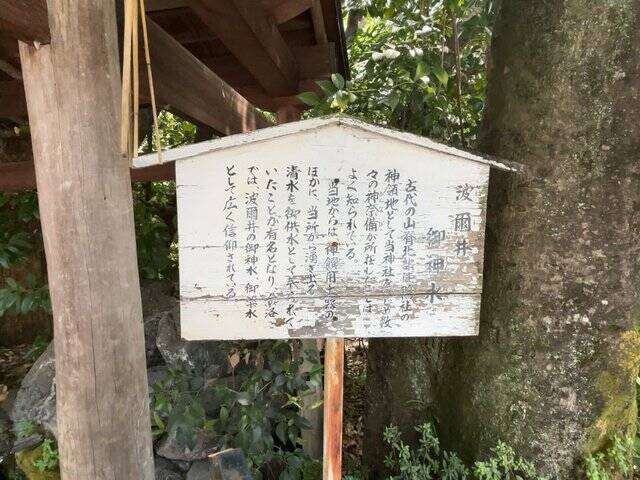 波爾井
御神水
古代の山背北
神領地として当神社
々の神宗備が所在したことは
よく知られている。
当地からは
ほかに、当所から湧き出る
清水を御供水として奉られて
いたことが有名となり、部落
では、波爾井の御神水、御霊水
として広く信仰されている